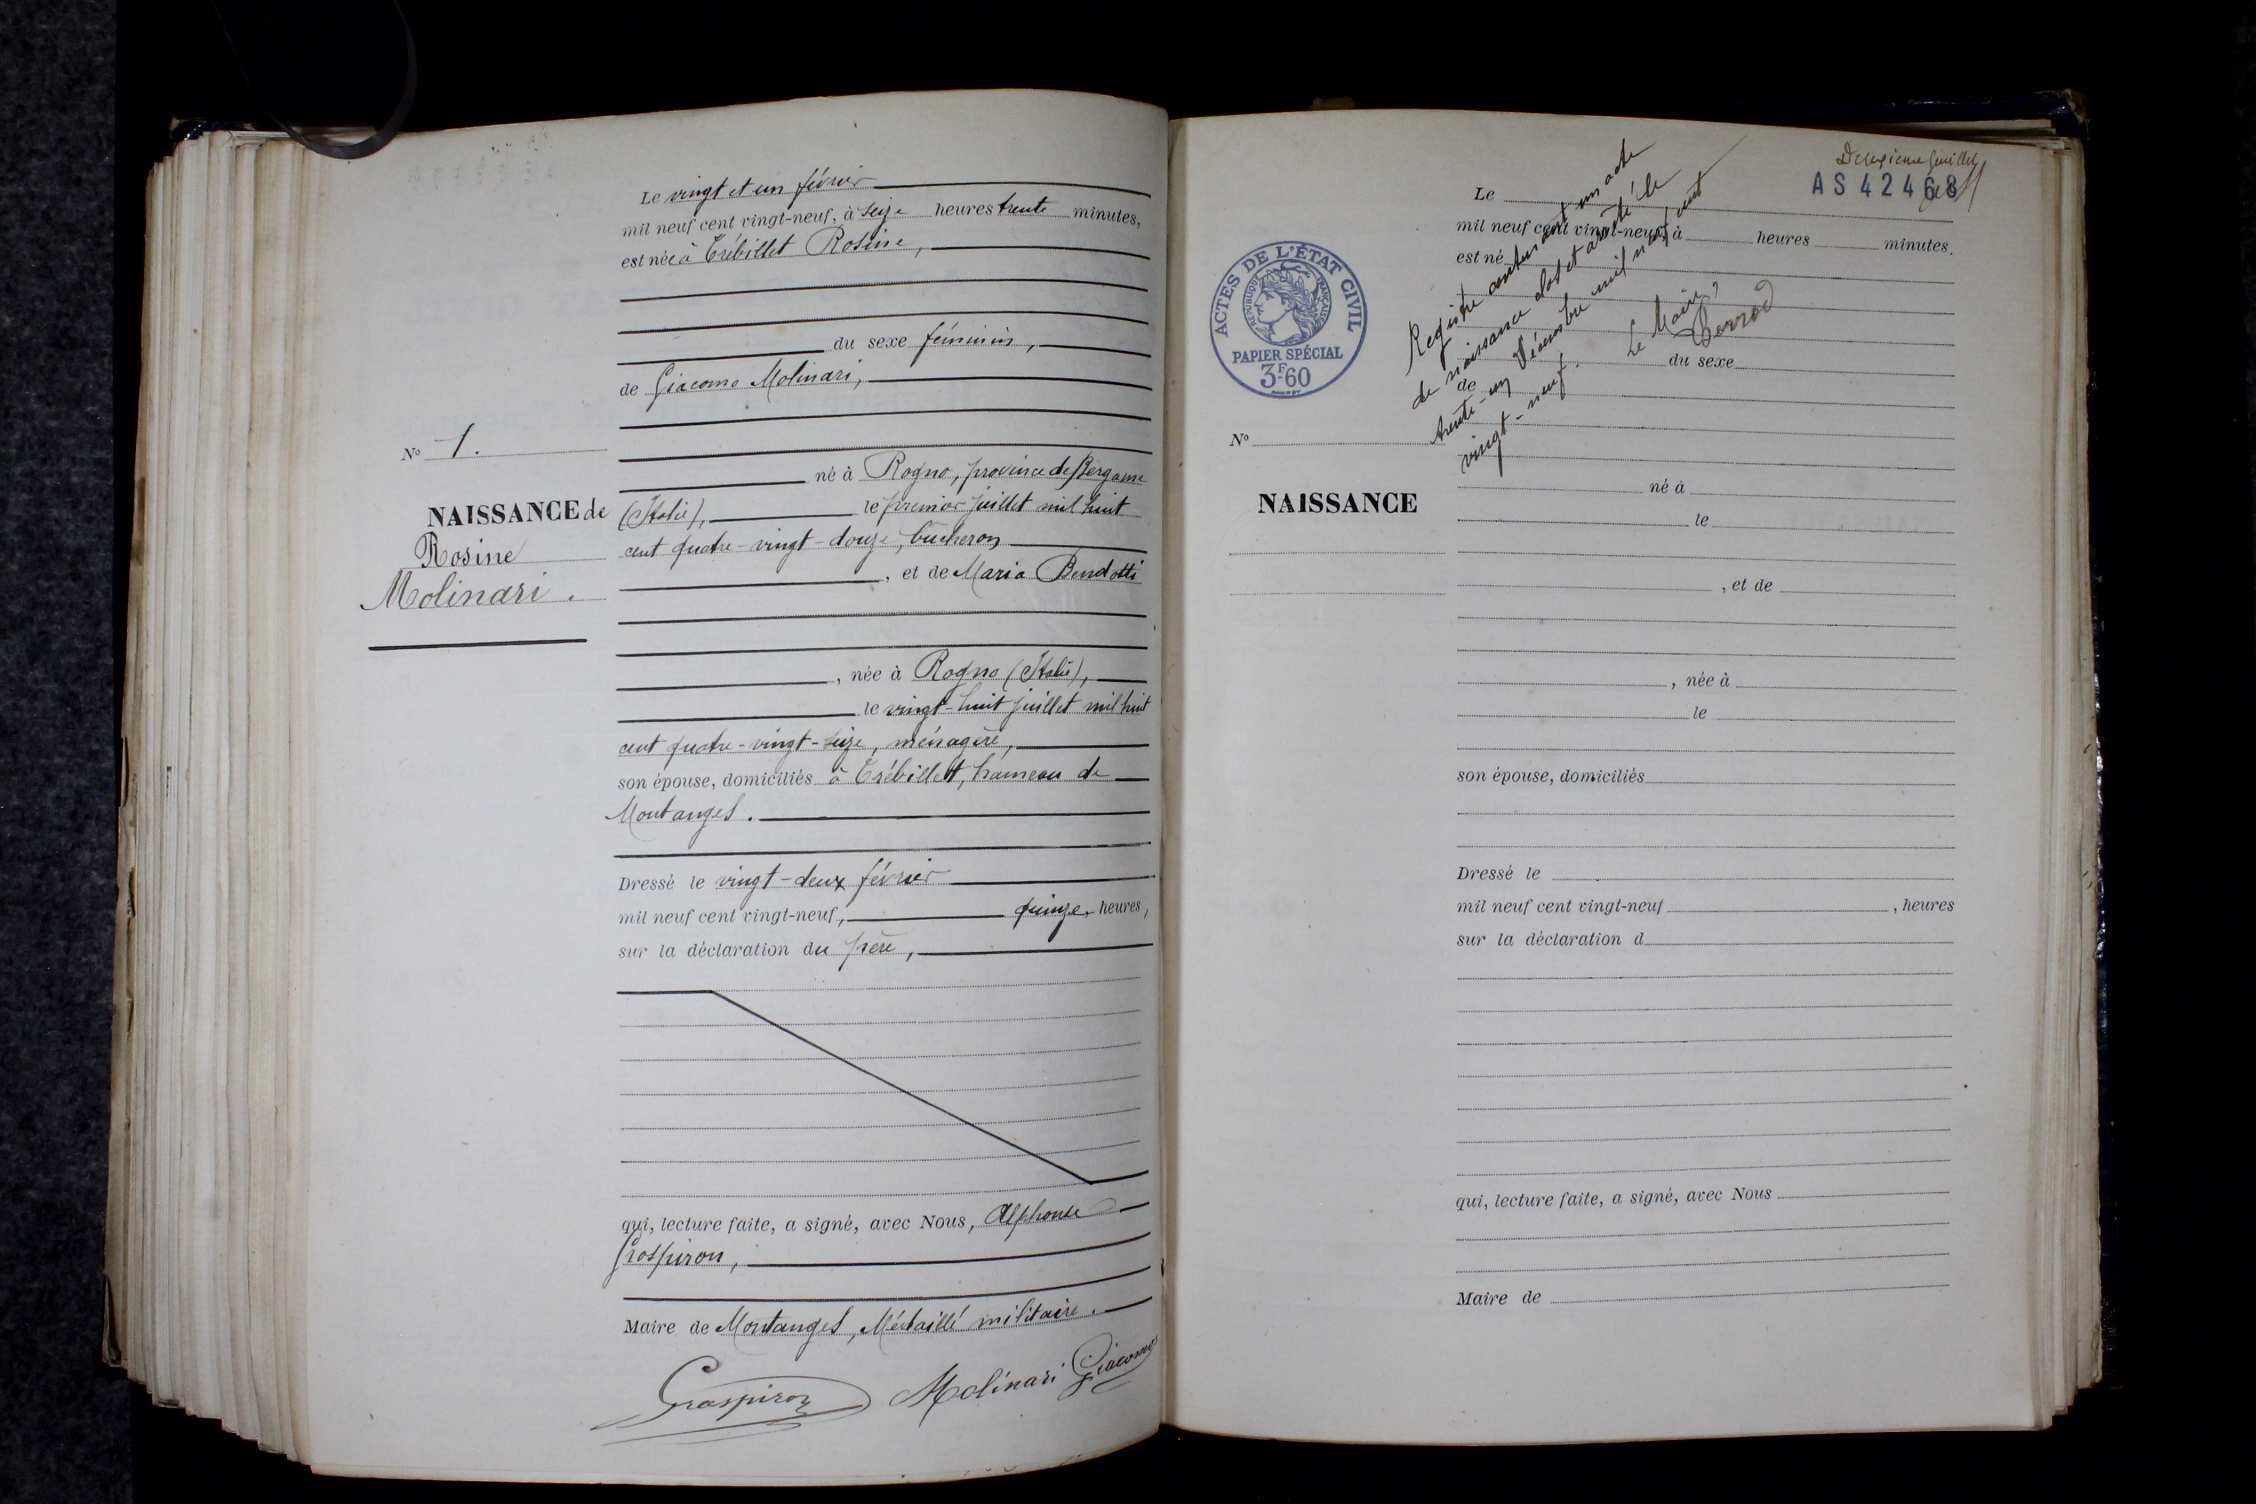 Le vingt et un février
mil neuf cent vingt-neuf, à seize heures trente minutes,
est née à Trébillet Rosine,
du sexe féminin,
de Giacomo Molinari,
No 1.
né à Rogno, province de Bergame
NAISSANCE de
(Italie), le premier juillet mil huit
Rosine
cent quatre-vingt-douze, bûcheron
Molinari.
, et de Maria Bendotti
, née à Rogno (Italie),
le vingt-huit juillet mil huit
cent quatre-vingt-seize, ménagère,
son épouse, domiciliés à Trébillet, hameau de
Montanges.
Dressé le vingt-deux février
mil neuf cent vingt-neuf, quinze heures,
sur la déclaration du père,
qui, lecture faite, a signé, avec Nous, Alphonse
Grospiron,
Maire de Montanges, Médaillé militaire.
Grospiron Molinari Giacomo
Deuxième feuillet
AS 42468
Le
mil neuf cent vingt-neuf, à heures minutes.
est né
Registre contenant un acte
de naissance clos et arrêté le
trente-un Décembre mil neuf cent
vingt-neuf.
Le Maire,
ACTES DE L'ÉTAT CIVIL
RÉPUBLIQUE FRANÇAISE
PAPIER SPÉCIAL
3F60
du sexe
de
No
né à
NAISSANCE
le
, et de
, née à
le
son épouse, domiciliés
Dressé le
mil neuf cent vingt-neuf , heures
sur la déclaration d
qui, lecture faite, a signé, avec Nous
Maire de